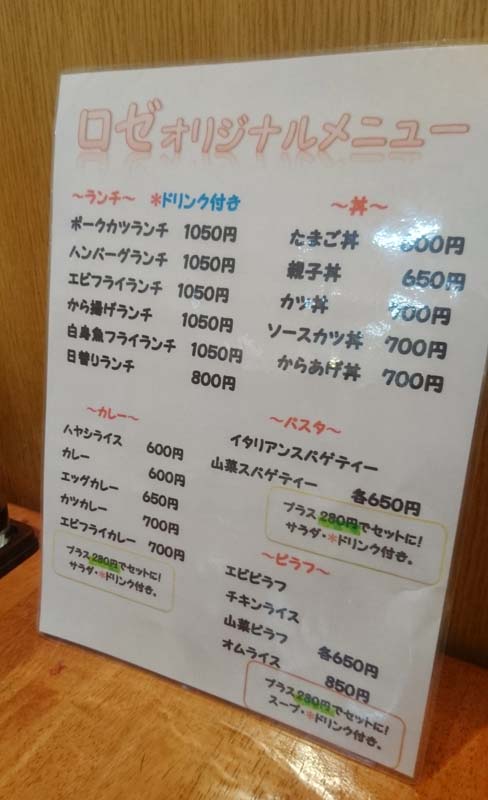 ロゼオリジナルメニュー
～ランチ～ *ドリンク付き
ポークカツランチ 1050円
ハンバーグランチ 1050円
エビフライランチ 1050円
から揚げランチ 1050円
白身魚フライランチ 1050円
日替りランチ 800円
～丼～
たまご丼 600円
親子丼 650円
カツ丼 700円
ソースカツ丼 700円
からあげ丼 700円
～カレー～
ハヤシライス 600円
カレー 600円
エッグカレー 650円
カツカレー 700円
エビフライカレー 700円
プラス280円でセットに!
サラダ・*ドリンク付き。
～パスタ～
イタリアンスパゲティー
山菜スパゲティー
各650円
プラス280円でセットに!
サラダ・*ドリンク付き。
～ピラフ～
エビピラフ
チキンライス
山菜ピラフ 各650円
オムライス 850円
プラス280円でセットに!
スープ・*ドリンク付き。